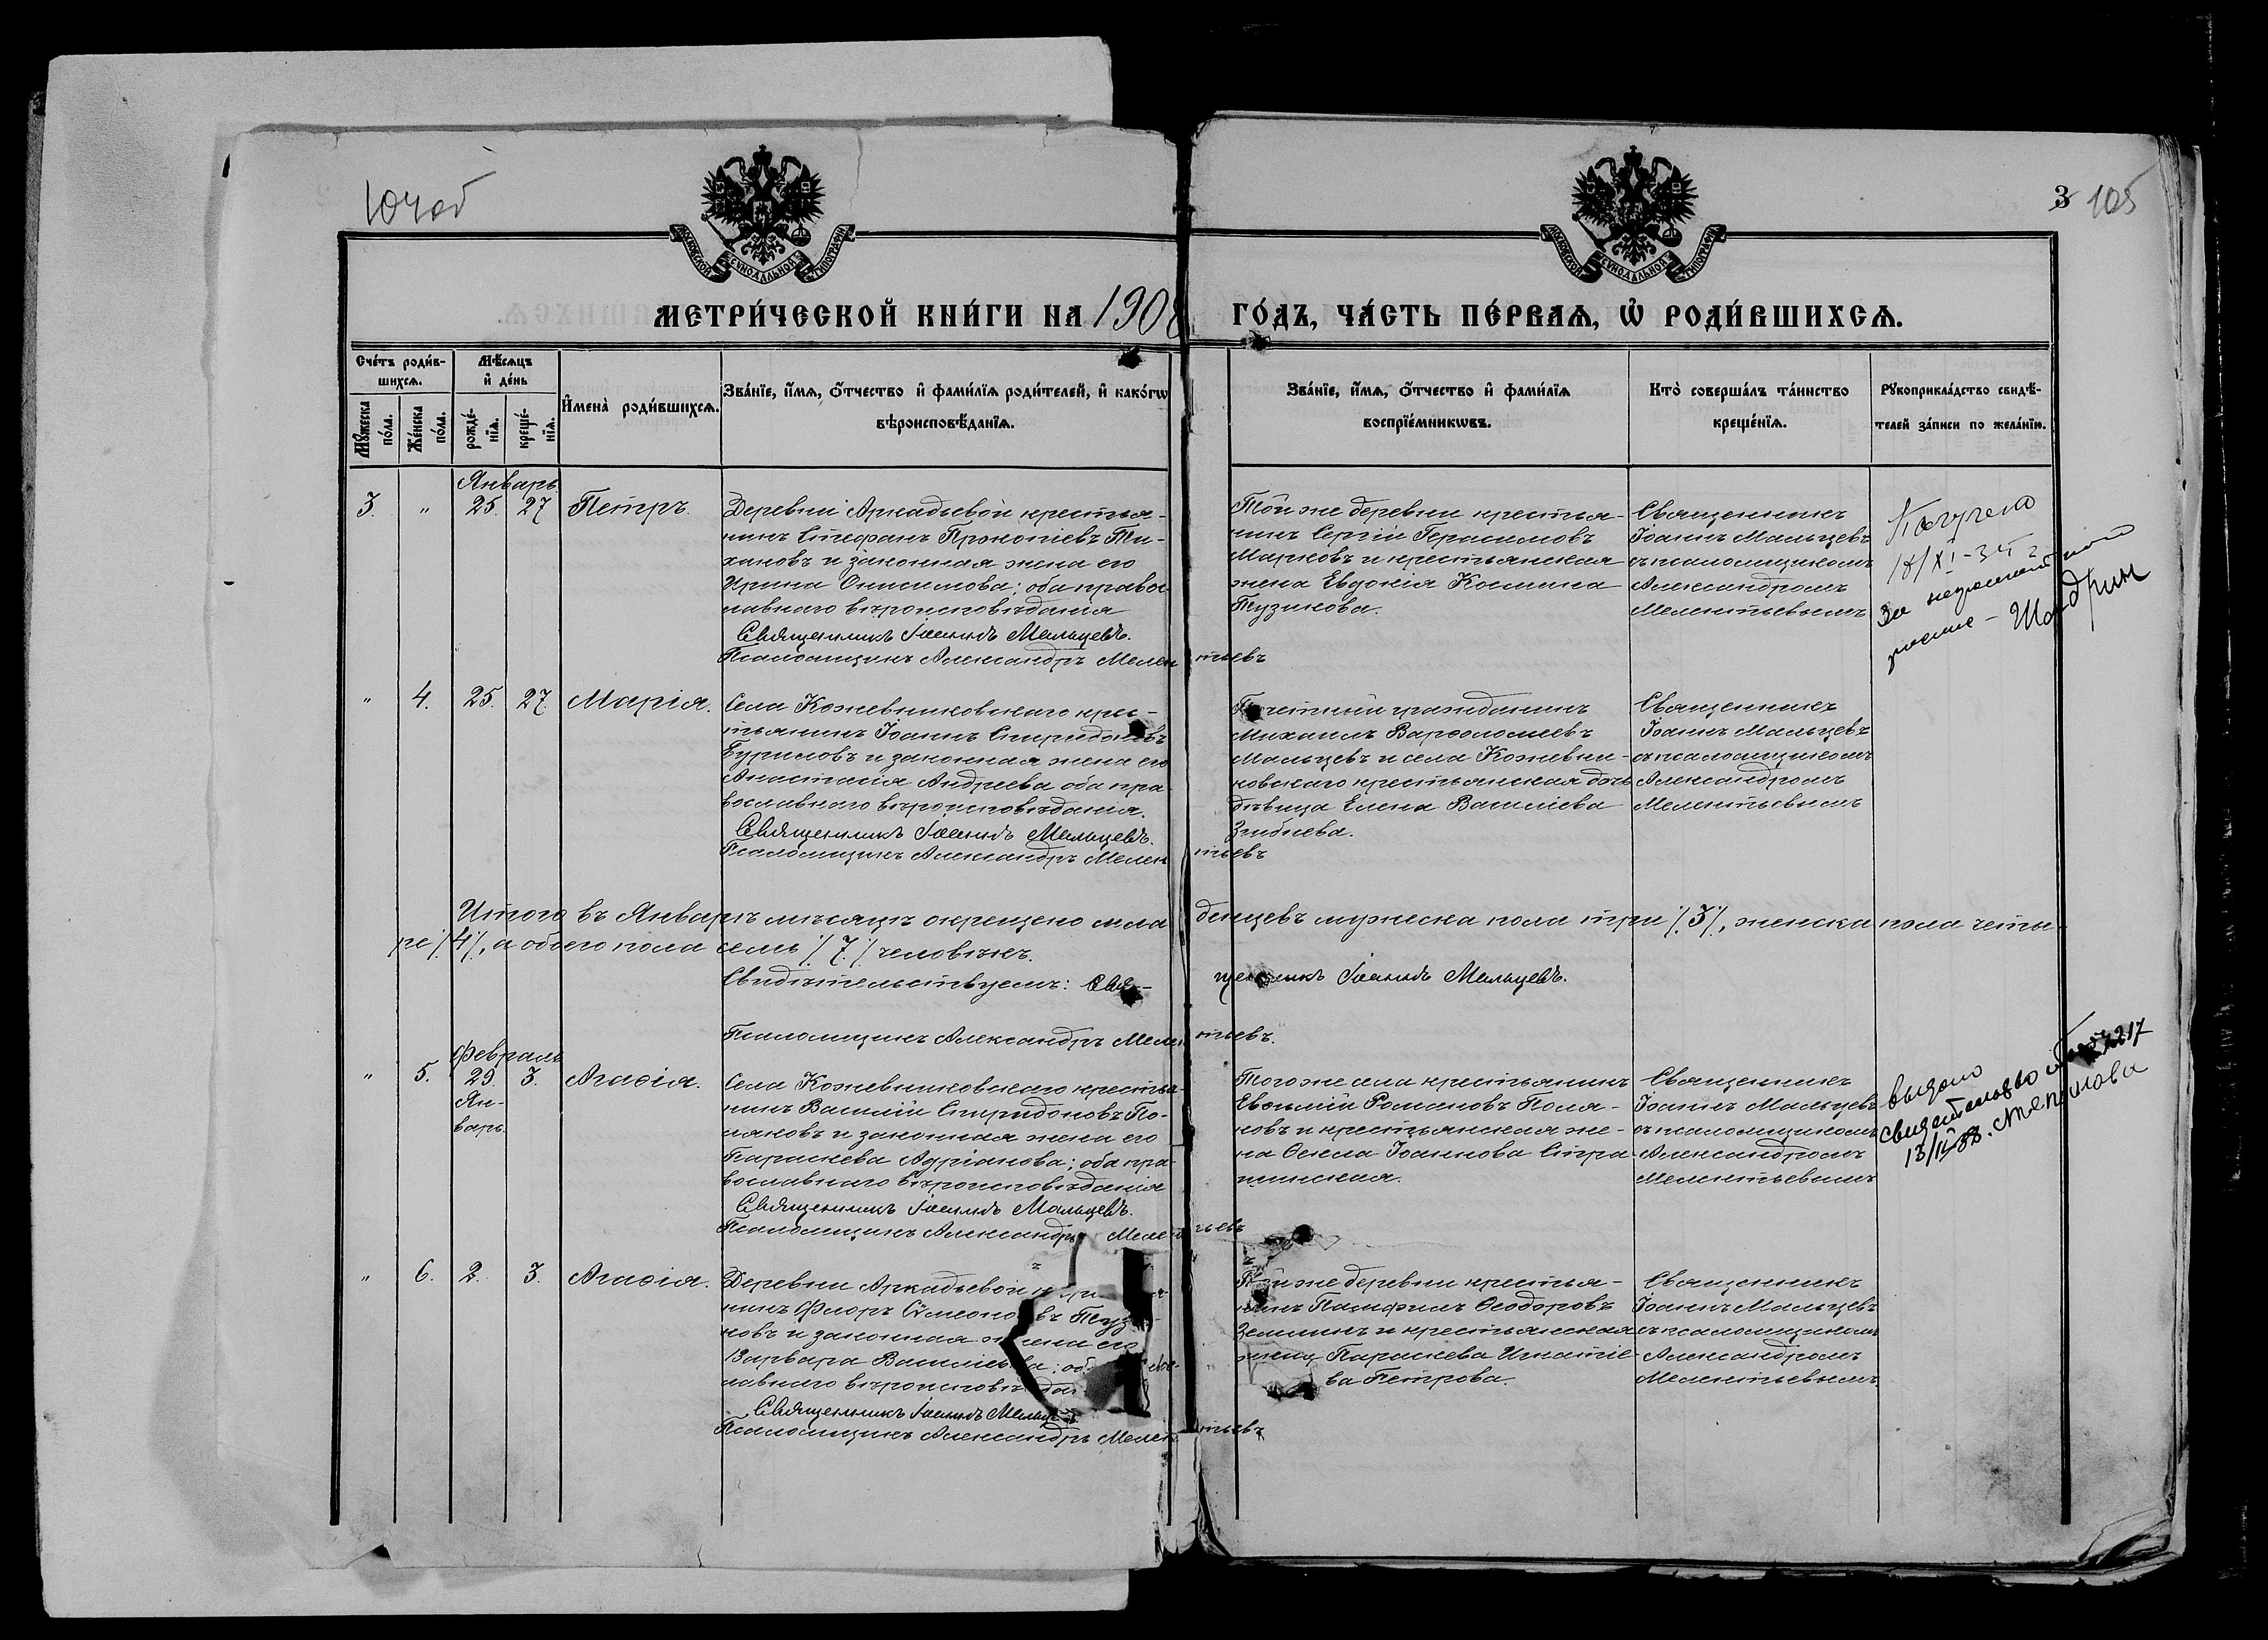 104об
3 105
МОСКОВСКОЙ СѴНОДАЛЬНОЙ ТИПОГРАФІИ
МОСКОВСКОЙ СѴНОДАЛЬНОЙ ТИПОГРАФІИ
МЕТРИ́ЧЕСКОЙ КНИ́ГИ НА 1908 ГО́ДЪ, ЧА́СТЬ ПЕ́РВАѦ, Ѡ҆ РОДИ́ВШИХСѦ.
Сче́тъ роди́в-
шихсѧ.
Мꙋ́жеска по́ла.
Же́нска по́ла.
Мѣ́сѧцъ
и҆ де́нь
рожде́-
нїѧ.
креще́-
нїѧ.
И҆мена̀ роди́вшихсѧ.
Зва́нїе, и҆́мѧ, ѻ҆́тчество и҆ фами́лїѧ роди́телей, и҆ како́гѡ
вѣроисповѣ́данїѧ.
Зва́нїе, и҆́мѧ, ѻ҆́тчество и҆ фами́лїѧ
воспрїе́мникѡвъ.
Кто̀ соверша́лъ та́инство
креще́нїѧ.
Рꙋкоприкла́дство свидѣ́-
телей за́писи по жела́нїю.
Январь
3. " 25. 27 Петръ.
Деревни Аркадьевой крестья-
нинъ Стефанъ Прокопіевъ Ти-
хановъ и законная жена его
Ирина Онисимова; оба правос-
лавнаго вѣроисповѣданія
Священникъ Іоаннъ Мальцевъ.
Псаломщикъ Александръ Мелентьевъ
Той же деревни крестья-
нинъ Сергій Герасимовъ
Марковъ и крестьянская
жена Евдокія Космина
Пузикова.
Священникъ
Іоаннъ Мальцевъ
съ псаломщикомъ
Александромъ
Мелентьевымъ
Получено
18/XI-34 г
За
Шандрин
" 4. 25. 27. Марія.
Села Кожевниковскаго крес-
тьянинъ Іоаннъ Спиридоновъ
Буримовъ и законная жена его
Анастасія Андреева оба пра-
вославнаго вѣроисповѣданія.
Священникъ Іоаннъ Мальцевъ.
Псаломщикъ Александръ Мелентьевъ
Почетный гражданинъ
Михаилъ Варѳоломеевъ
Мальцевъ и села Кожевни-
ковскаго крестьянская дочь
дѣвица Елена Василіева
Згибнева.
Священникъ
Іоаннъ Мальцевъ
съ псаломщикомъ
Александромъ
Мелентьевымъ
Итого въ Январѣ мѣсяцѣ окрещено младенцевъ мужеска пола три /.3/., женска пола четы-
ре /.4/., а обоего пола семь /.7./ человѣкъ.
Свидѣтельствуемъ: Священникъ Іоаннъ Мальцевъ.
Псаломщикъ Александръ Мелентьевъ.
Февраль
" 5. 29. 3. Агаѳія.
Ян-
варь.
Села Кожевниковскаго крестья-
нинъ Василій Спиридоновъ По-
ляковъ и законная жена его
Параскева Адріанова; оба пра-
вославнаго вѣроисповѣданія
Священникъ Іоаннъ Мальцевъ.
Псаломщикъ Александръ Мелентьевъ
Того же села крестьянинъ
Евѳимій Романовъ Поля-
ковъ и крестьянская же-
на Ѳекла Іоаннова
Священникъ
Іоаннъ Мальцевъ
съ псаломщикомъ
Александромъ
Мелентьевымъ
выдано
свидетелство
13/II-38.
" 6. 2. 3. Агаѳія.
Деревни Аркадьевой
нинъ Флоръ Сѵмеоновъ
ковъ и законная жена его
Варвара Василіева;
лавнаго
Священникъ Іоаннъ
Псаломщикъ Александръ Мелентьевъ
Той же деревни крестья-
нинъ Памфилъ Ѳеодоровъ
Землинъ и крестьянская
жена Параскева Игнатіе-
ва Петрова.
Священникъ
Іоаннъ Мальцевъ
съ псаломщикомъ
Александромъ
Мелентьевымъ.